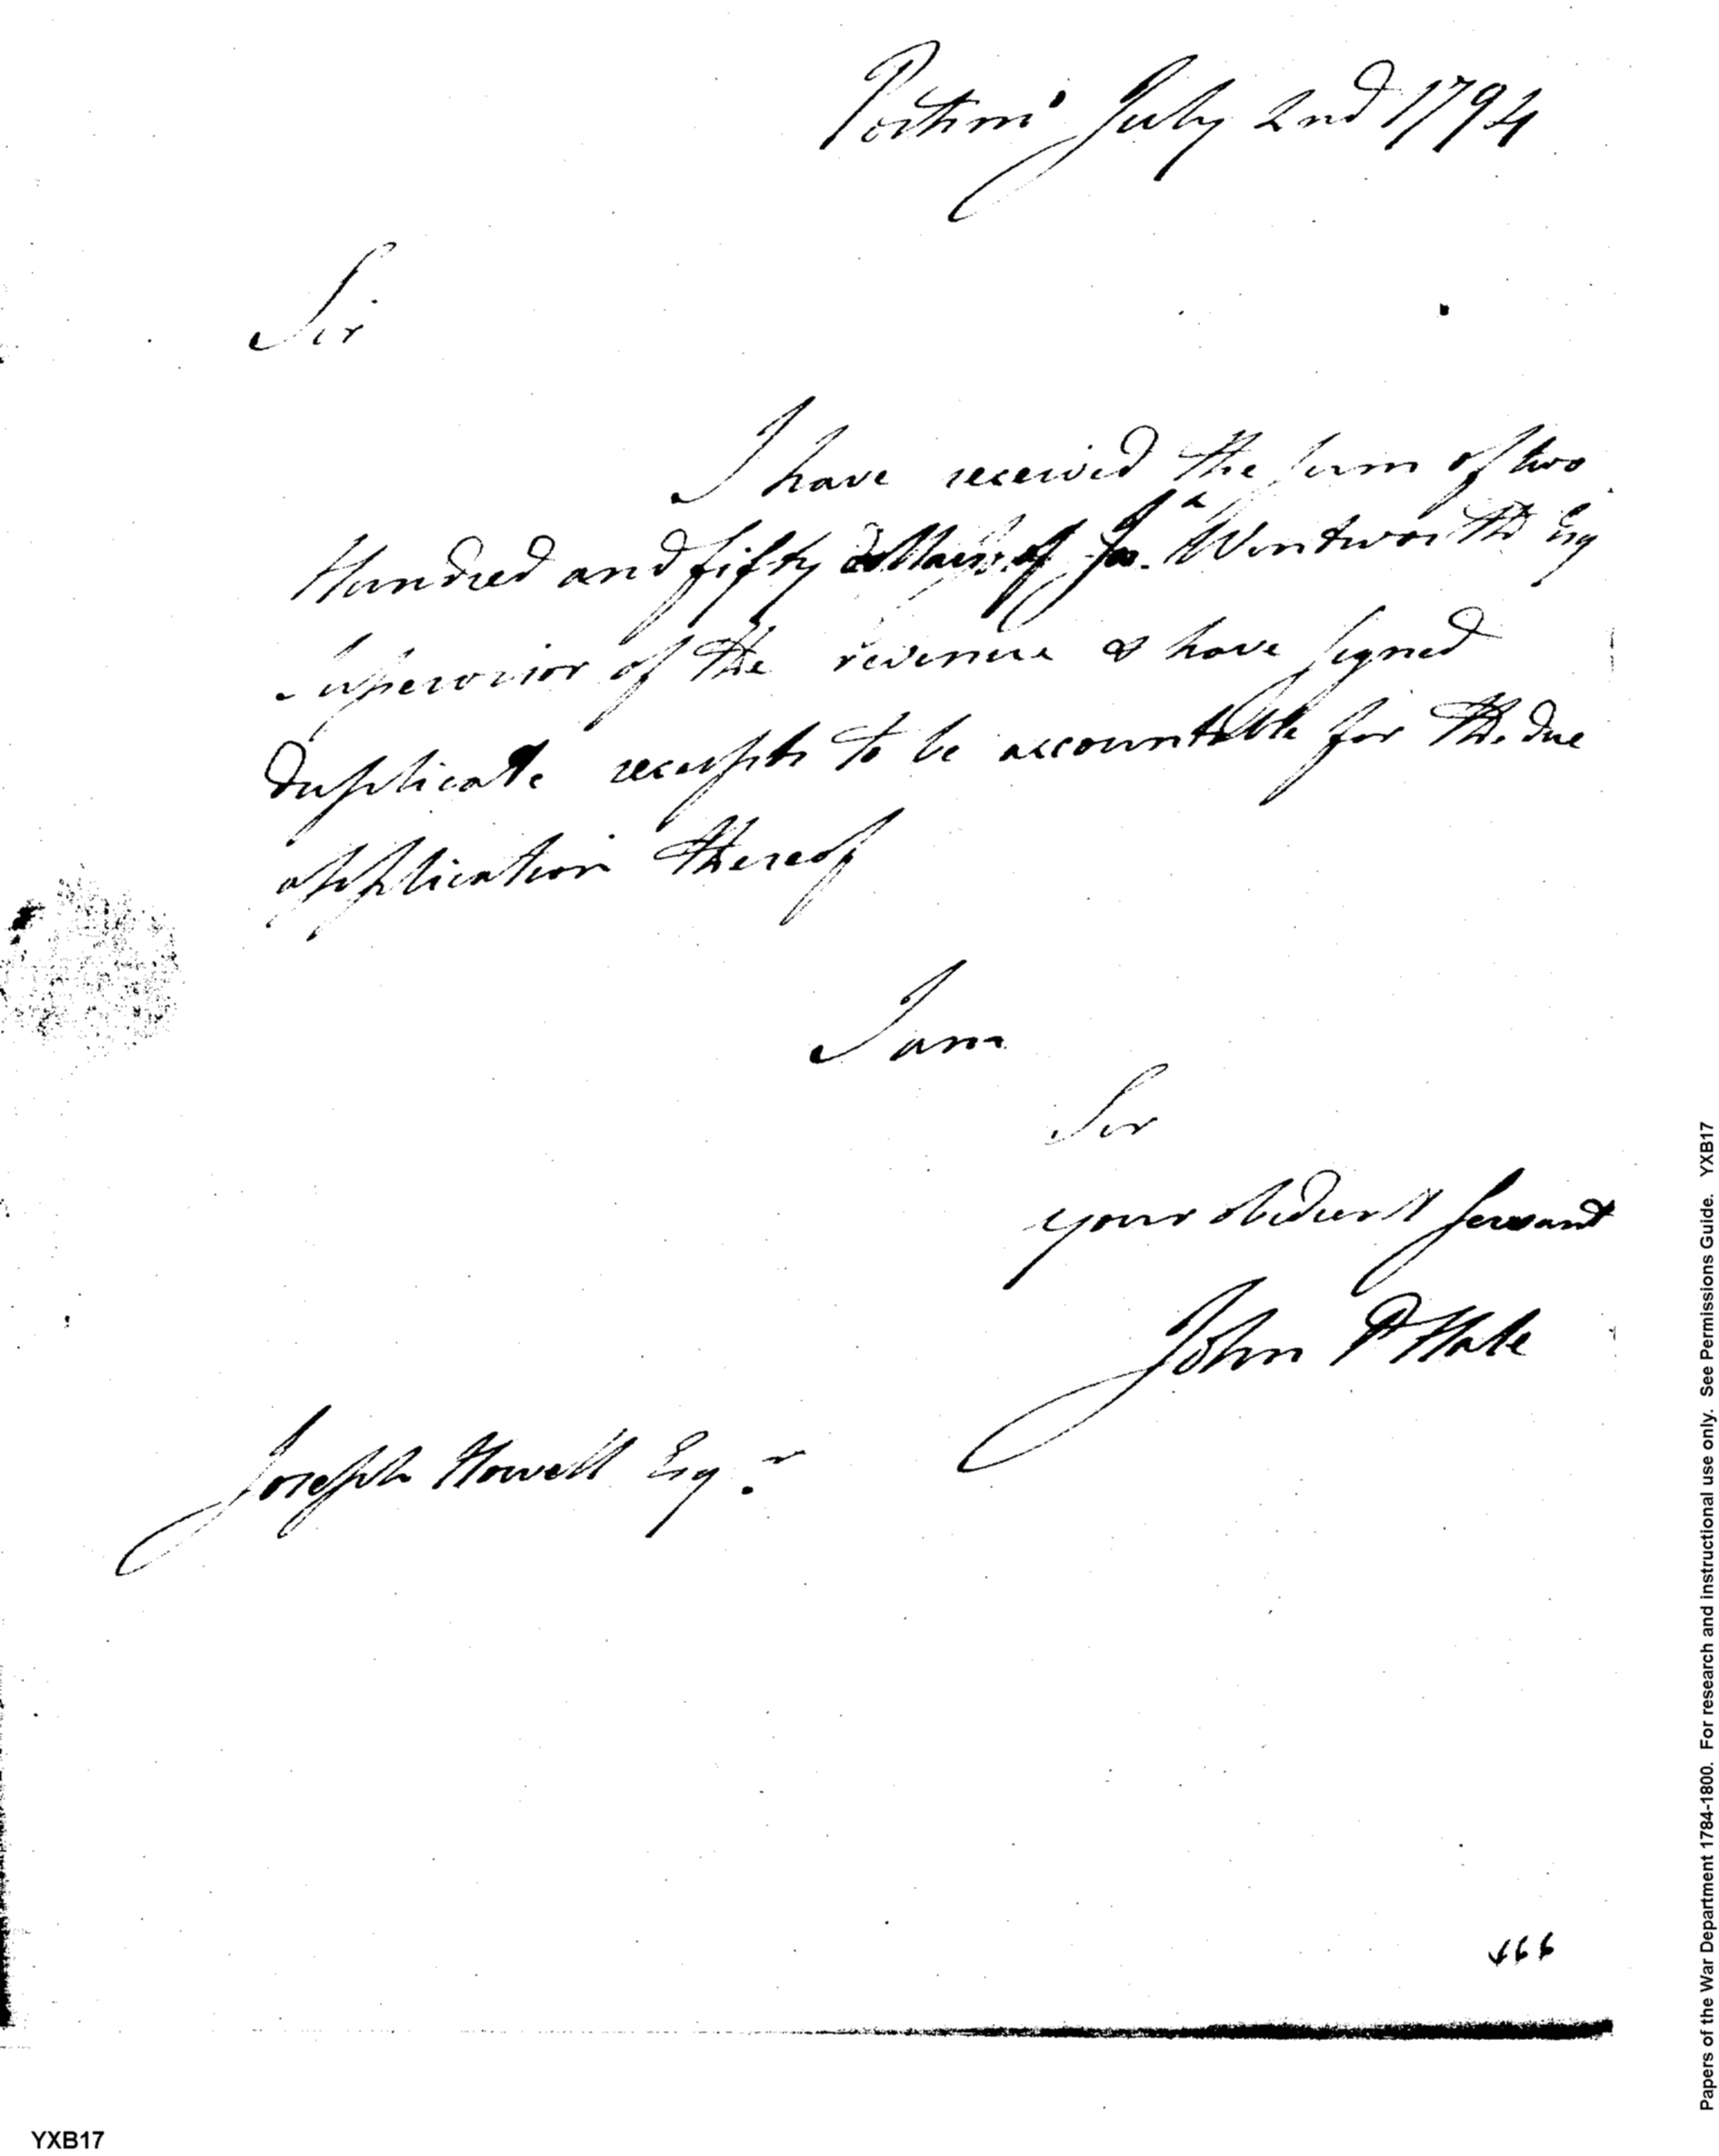 Portsmº July 2nd 1794
Sir
I have received the sum of two
Hundred and fifty dollars of Wentworth Esq
Supervisor of the revenue & have signed
duplicate receipts to be accountable for the due
application thereof
I am
Sir
your obedient servant
John P Hale
Joseph Howell Esqr
466
YXB17
Papers of the War Department 1784-1800. For research and instructional use only. See Permissions Guide. YXB17